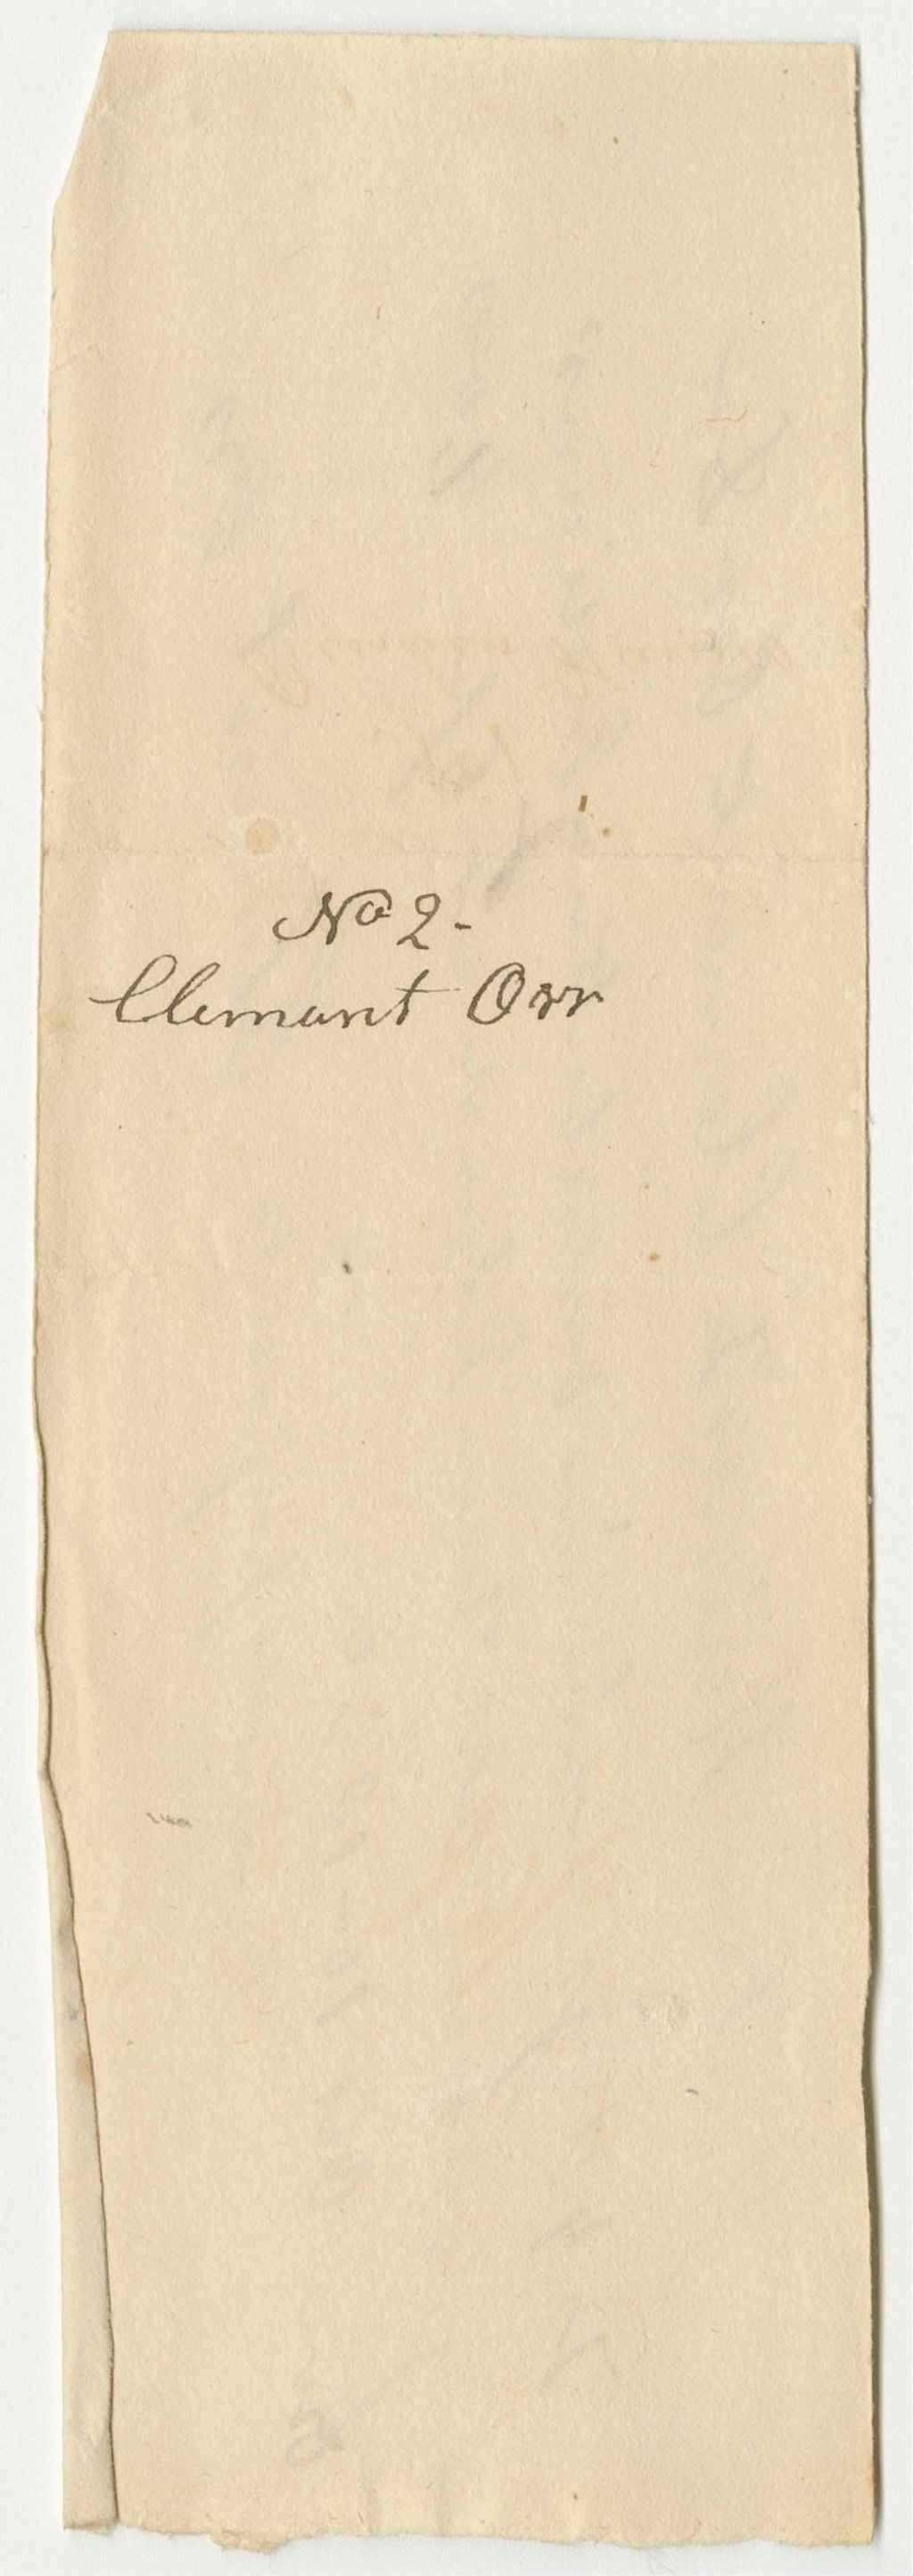 No 2-
Clemant Orr